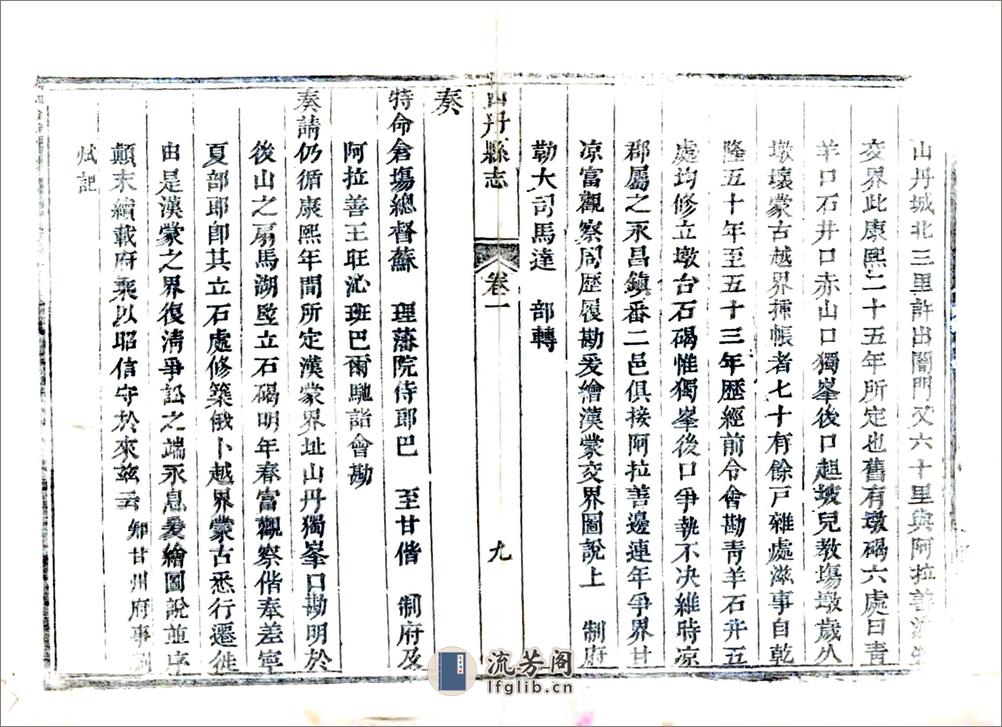 山丹城北三里許出闇門又六十里與阿拉善
交界此康熙二十五年所定也舊有墩碣六處曰青
羊口石井口赤山口獨峯後口趄坡兒教場墩歲久
墩壞蒙古越界揷帳者七十有餘戸雜處滋事自乾
隆五十年至五十三年歴經前令會勘靑羊石井五
處均修立墩台石碣惟獨峯後口爭執不决維時凉
郡屬之永昌鎮番二邑俱接阿拉善邊連年爭界甘
凉富觀察周歴履勘爰繪漢蒙交界圖說上　制府
勒大司馬達　部轉
山丹縣志　卷一　九
奏
特命倉塲總督蘇　理藩院侍郎巴　至甘偕　制府及
阿拉善王旺沁班巴爾馳詣會勘
奏請仍循康熙年間所定漢蒙界址山丹獨峯口勘明於
後山之扇馬湖竪立石碣明年春富觀察偕奉差寧
夏部郎卽其立石處修築俄卜越界蒙古悉行遷徙
由是漢蒙之界復淸爭訟之端永息爰繪圖說並序
顛末續載府乘以昭信守於來玆云　知甘州府事
斌記
流芳阁
lfglib.cn